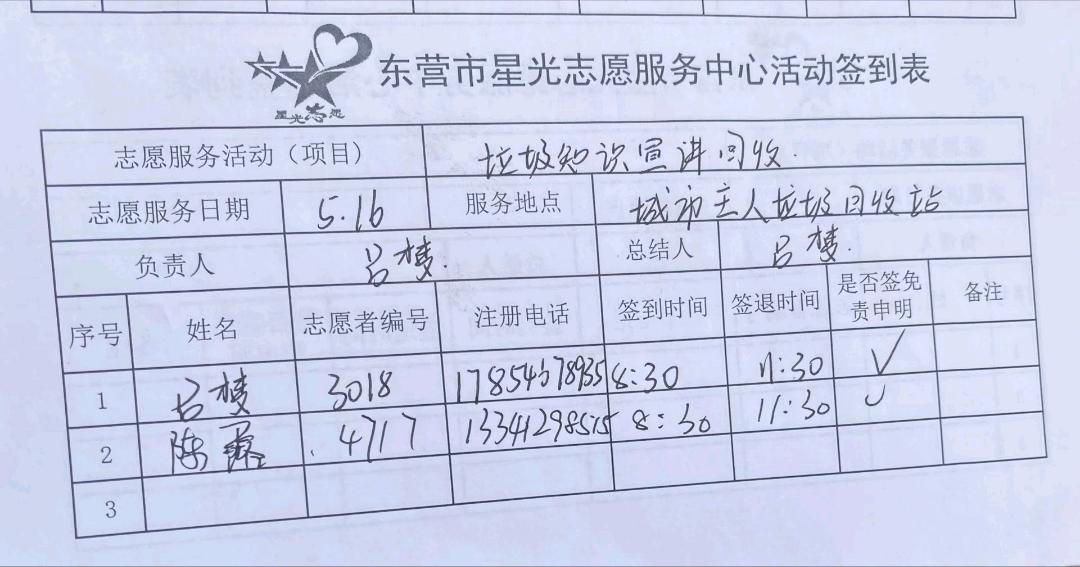 星光志愿
东营市星光志愿服务中心活动签到表
志愿服务活动（项目） 垃圾知识宣讲回收.
志愿服务日期 5.16 服务地点 城市主人垃圾回收站
负责人 吕梦. 总结人 吕梦.
序号 姓名 志愿者编号 注册电话 签到时间 签退时间 是否签免责申明 备注
1 吕梦 3018 8:30 11:30 ✓
2 陈 4717 8:30 11:30 ✓
3